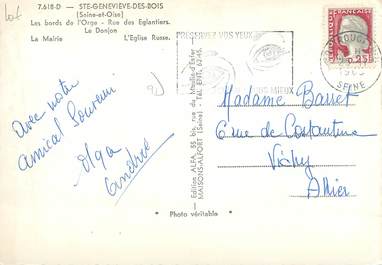 Lot
7.618-D - STE-GENEVIÈVE-DES-BOIS
(Seine-et-Oise)
Les bords de l'Orge - Rue des Eglantiers.
Le Donjon
La Mairie L'Eglise Russe.
PRESERVEZ VOS YEUX
MIEUX
SEINE
REPUBLIQUE FRANÇAISE
Avec notre
amical Souvenir
Olga
Andrée
Edition ALFA, 85 bis, rue du Moulin-d'Enfer
MAISONS-ALFORT (Seine) - Tél. ENT. 62.45.
Madame Barret
6 rue de Constantine
Vichy
Allier
Photo véritable